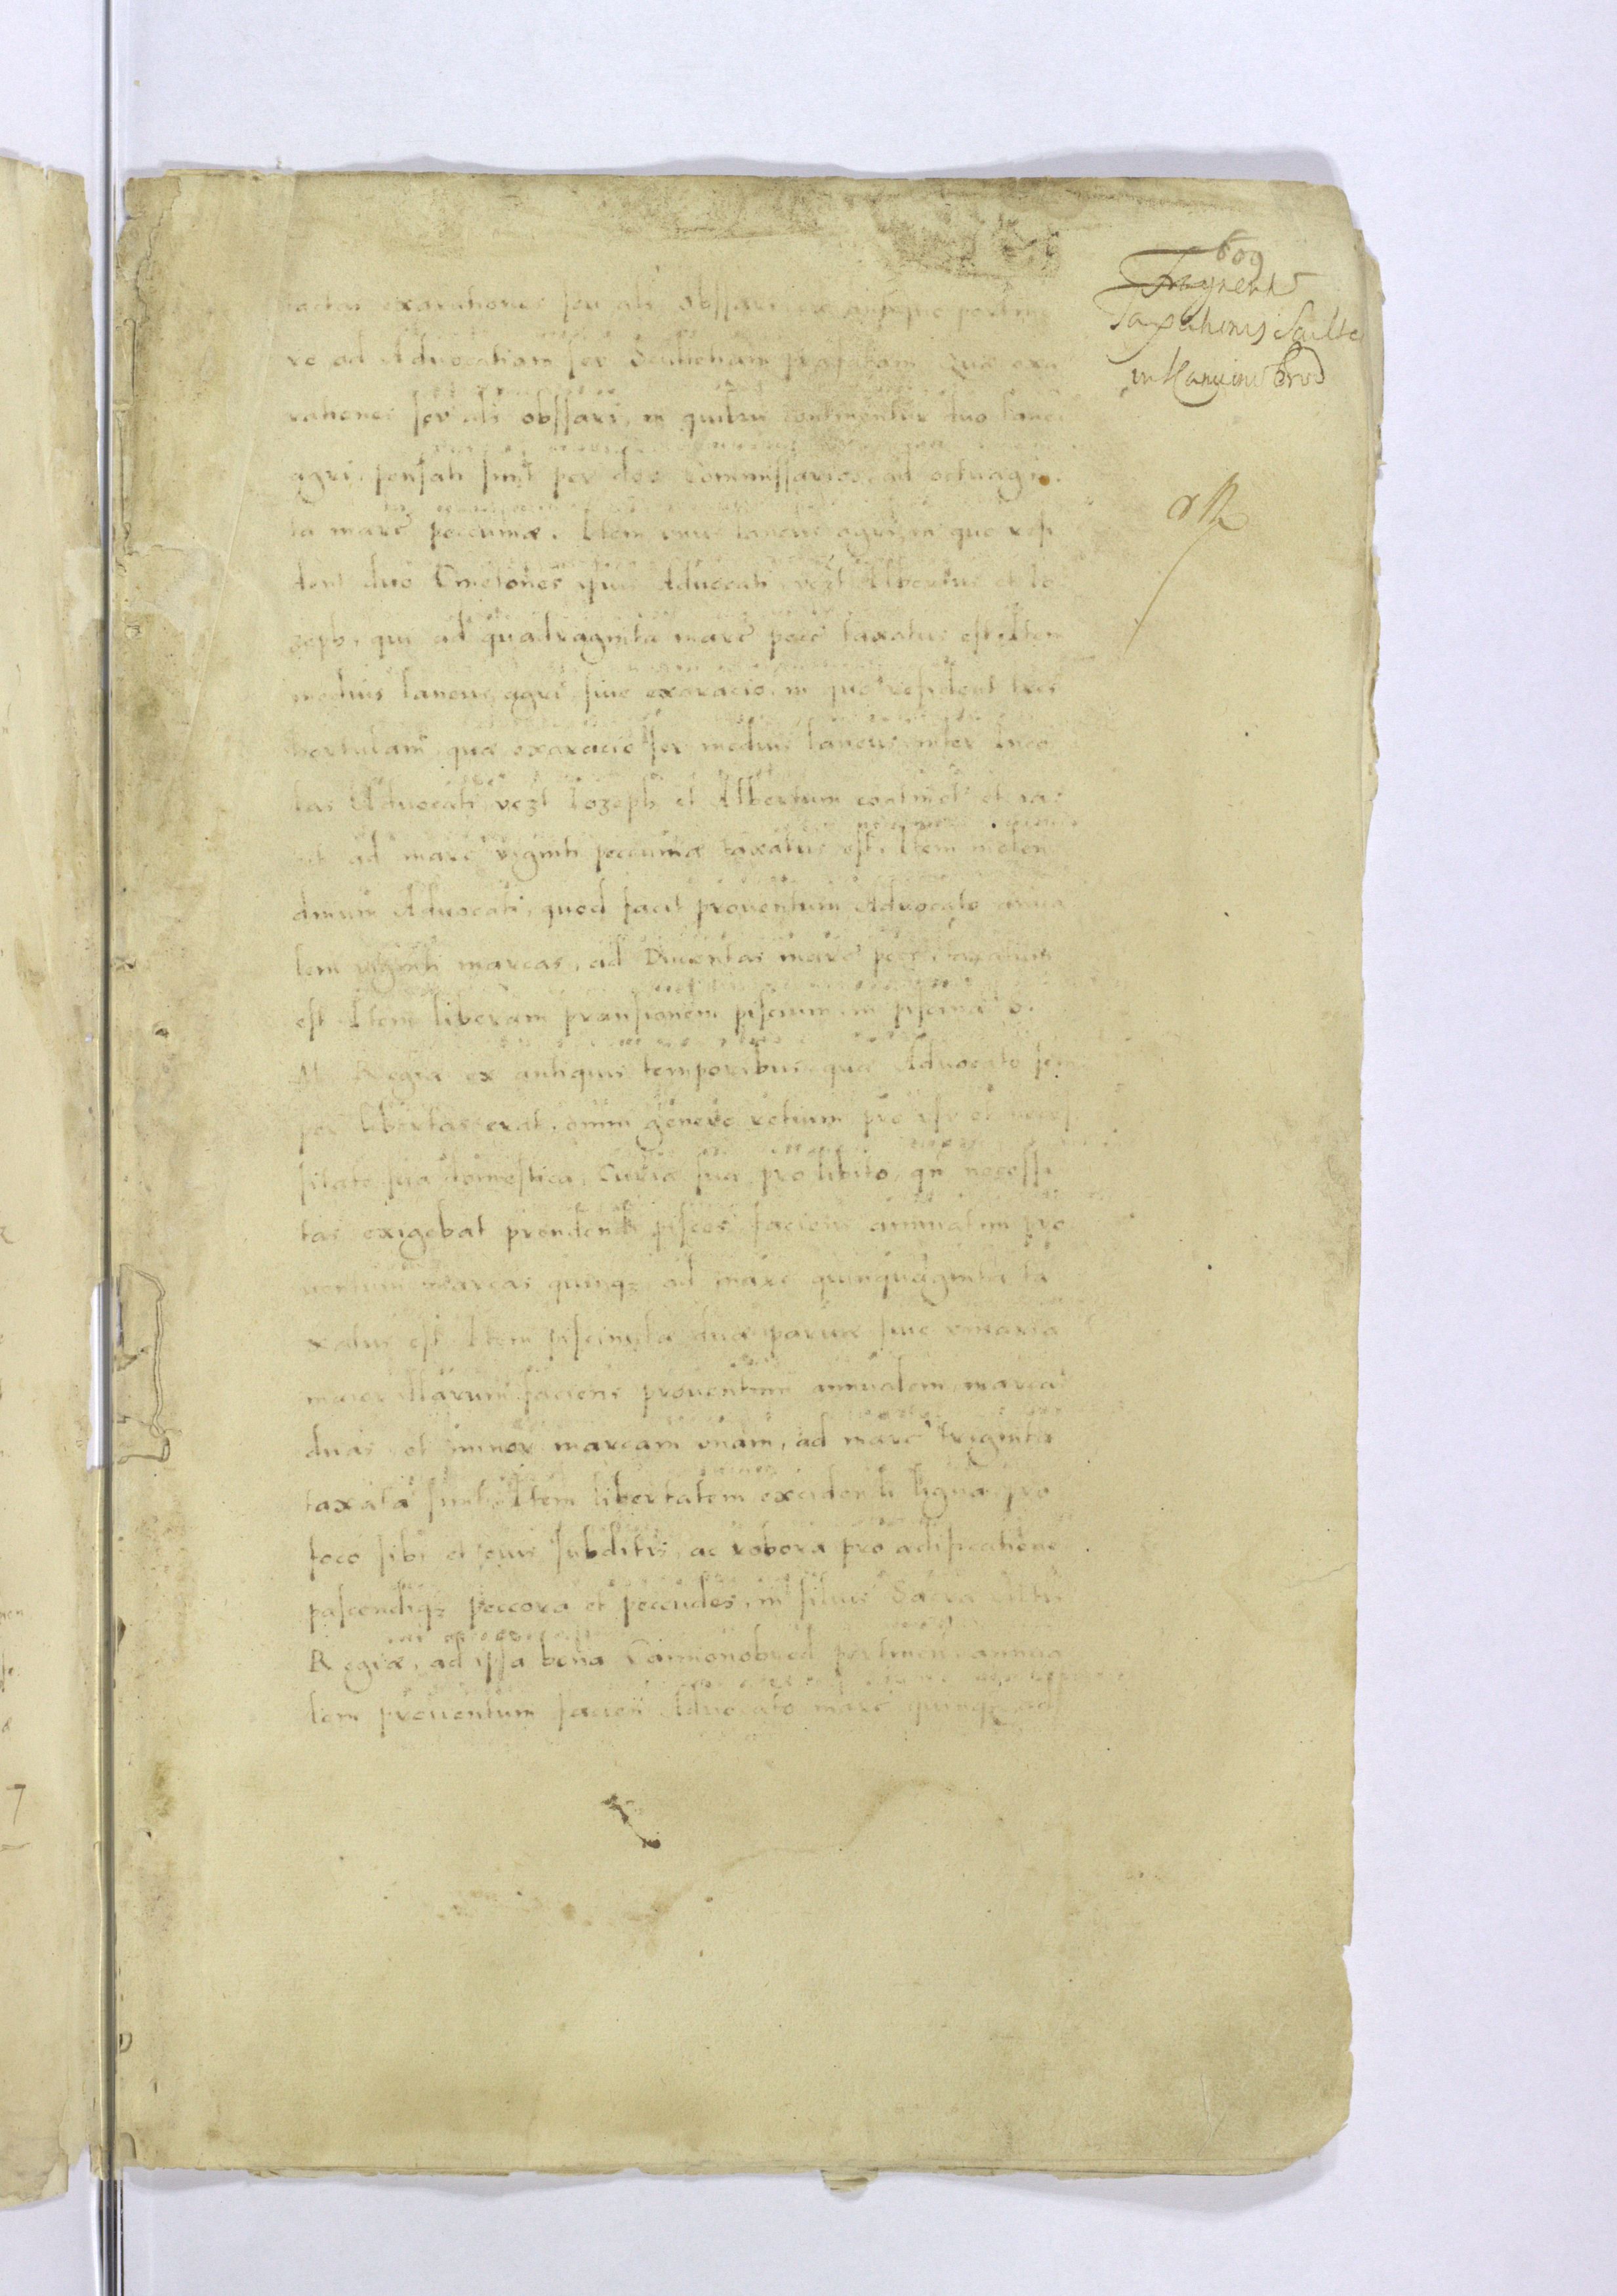 609
Fragment
Taxationis Sculte
in Kamioni Brod
factas exarationes seu als obssari
re ad Advocatiam seu Scultetiam Quae exa
rationes seu als obssari, in quibus continentur duo lanei
agri, pensati sunt per dos Commissarios, ad octuagin
ta marc peccuniae. Item unus laneus agri, in quo resi
dent duo Cmetones Advocati, vezt Albertus et Io
zeph, qui ad quadraginta marc pecc taxatus est. Item
medius laneus agri siue exaracio, in quo resident tres
hortulani quae exaracio seu medius laneus, inter Inco
las Advocati, vezt Iozeph et Albertum continet et ia
cet ad marc viginti peccuniae taxatus est. Item molen
dinum Advocati, quod facit prouentum Advocato annua
lem viginti marcas, ad Ducentas marc pecc taxatum
est Item liberam pransionem piscium in piscina S.
M. Regiae ex antiquis temporibus, quae Advocato sem
per libertas erat, omni genere retium pro usu et neces
sitate sua domestica, Curiae sua, pro libito, qn necessi
tas exigebat prendendi pisces, faciens annuatim pro
uentum marcas quinqz, ad marc quinquaginta ta
xatus est. Item piscinula duae paruae siue viuaria
maior illarum faciens prouentum annualem, marcas
duas, et minor marcam unam, ad marc triginta
taxata sunt. Item libertatem excidendi ligna pro
foco sibi et suis subditis, ac robora pro aedificatione
pascendiqz peccora et peccudes, in siluis Sacrae Mttis
Regiae, ad ipsa bona Camionobrod pertinen annua
lem prouentum facien Advocato marc quinqz ad